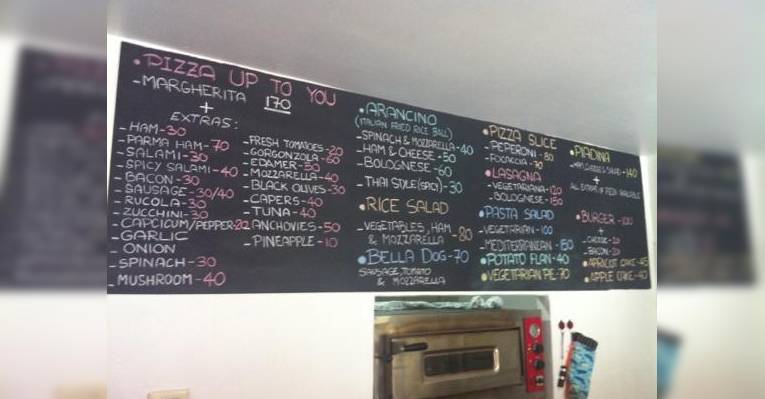 • PIZZA UP TO YOU
- MARGHERITA 170
+
EXTRAS:
- HAM - 30
- PARMA HAM - 70
- SALAMI - 30
- SPICY SALAMI - 40
- BACON - 30
- SAUSAGE - 30/40
- RUCOLA - 30
- ZUCCHINI - 30
- CAPCICUM/PEPPER - 20
- GARLIC
- ONION
- SPINACH - 30
- MUSHROOM - 40
- FRESH TOMATOES - 20
- GORGONZOLA - 60
- EDAMER - 50
- MOZZARELLA - 40
- BLACK OLIVES - 30
- CAPERS - 40
- TUNA - 40
- ANCHOVIES - 50
- PINEAPPLE - 10
• ARANCINO
(ITALIAN FRIED RICE BALL)
- SPINACH & MOZZARELLA - 40
- HAM & CHEESE - 50
- BOLOGNESE - 60
- THAI STYLE (SPICY) - 30
• RICE SALAD
- VEGETABLES, HAM
& MOZZARELLA - 80
• BELLA DOG - 70
SAUSAGE, TOMATO
& MOZZARELLA
• PIZZA SLICE
- PEPERONI - 80
- FOCACCIA - 70
• LASAGNA
- VEGETARIANA - 120
- BOLOGNESE - 150
• PASTA SALAD
- VEGETARIAN - 100
- MEDITERRANEAN - 150
• POTATO FLAN - 40
• VEGETARIAN PIE - 70
• PIADINA
- HAM, CHEESE & SALAD - 140
+
ALL EXTRAS OF PIZZA AVAILABLE
• BURGER - 100
+
- CHEESE - 20
- BACON - 20
• APRICOT CAKE - 45
• APPLE CAKE - 40